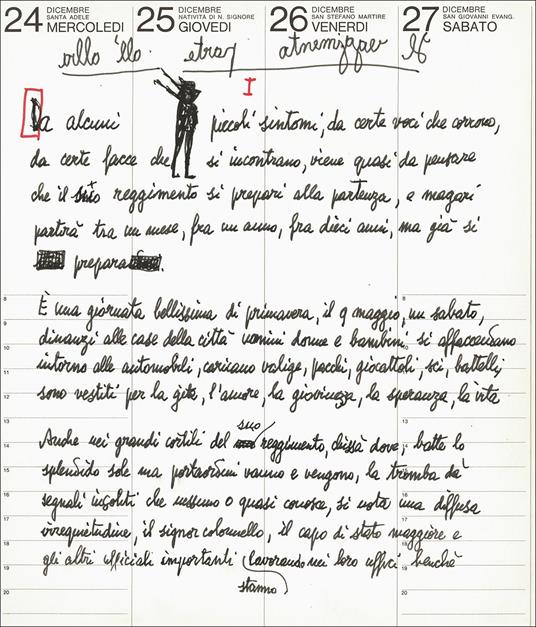 24 DICEMBRE SANTA ADELE MERCOLEDI
25 DICEMBRE NATIVITÀ DI N. SIGNORE GIOVEDI
26 DICEMBRE SAN STEFANO MARTIRE VENERDI
27 DICEMBRE SAN GIOVANNI EVANG. SABATO
abla 'lla etrap otnemigger lI
I
Da alcuni piccoli sintomi, da certe voci che corrono,
da certe facce che si incontrano, viene quasi da pensare
che il reggimento si prepari alla partenza, e magari
partirà tra un mese, fra un anno, fra dieci anni, ma già si
prepara.
È una giornata bellissima di primavera, il 9 maggio, un sabato,
dinanzi alle case della città uomini donne e bambini si affaccendano
intorno alle automobili, caricano valige, pacchi, giocattoli, sci, battelli,
sono vestiti per la gita, l'amore, la giovinezza, la speranza, la vita
Anche nei grandi cortili del suo reggimento, chissà dove, batte lo
splendido sole ma portaordini vanno e vengono, la tromba dà
segnali insoliti che nessuno o quasi conosce, si nota una diffusa
irrequietudine, il signor colonnello, il capo di stato maggiore e
gli altri ufficiali importanti stanno lavorando nei loro uffici benchè
8
9
10
11
12
13
14
15
16
17
18
19
20
8
9
10
11
12
13
14
15
16
17
18
19
20